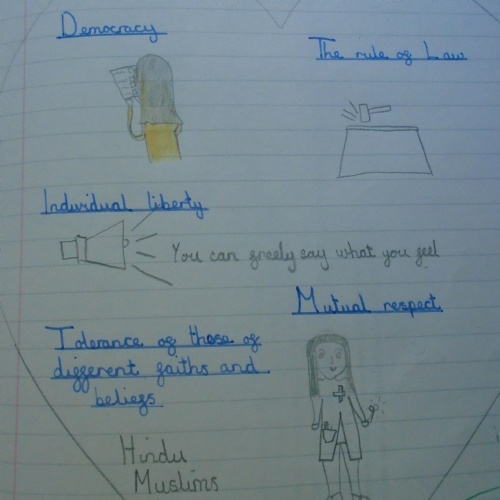 Democracy
The rule of Law
Individual liberty
You can freely say what you feel
Mutual respect
Tolerance of those of
different faiths and
beliefs
Hindu
Muslims